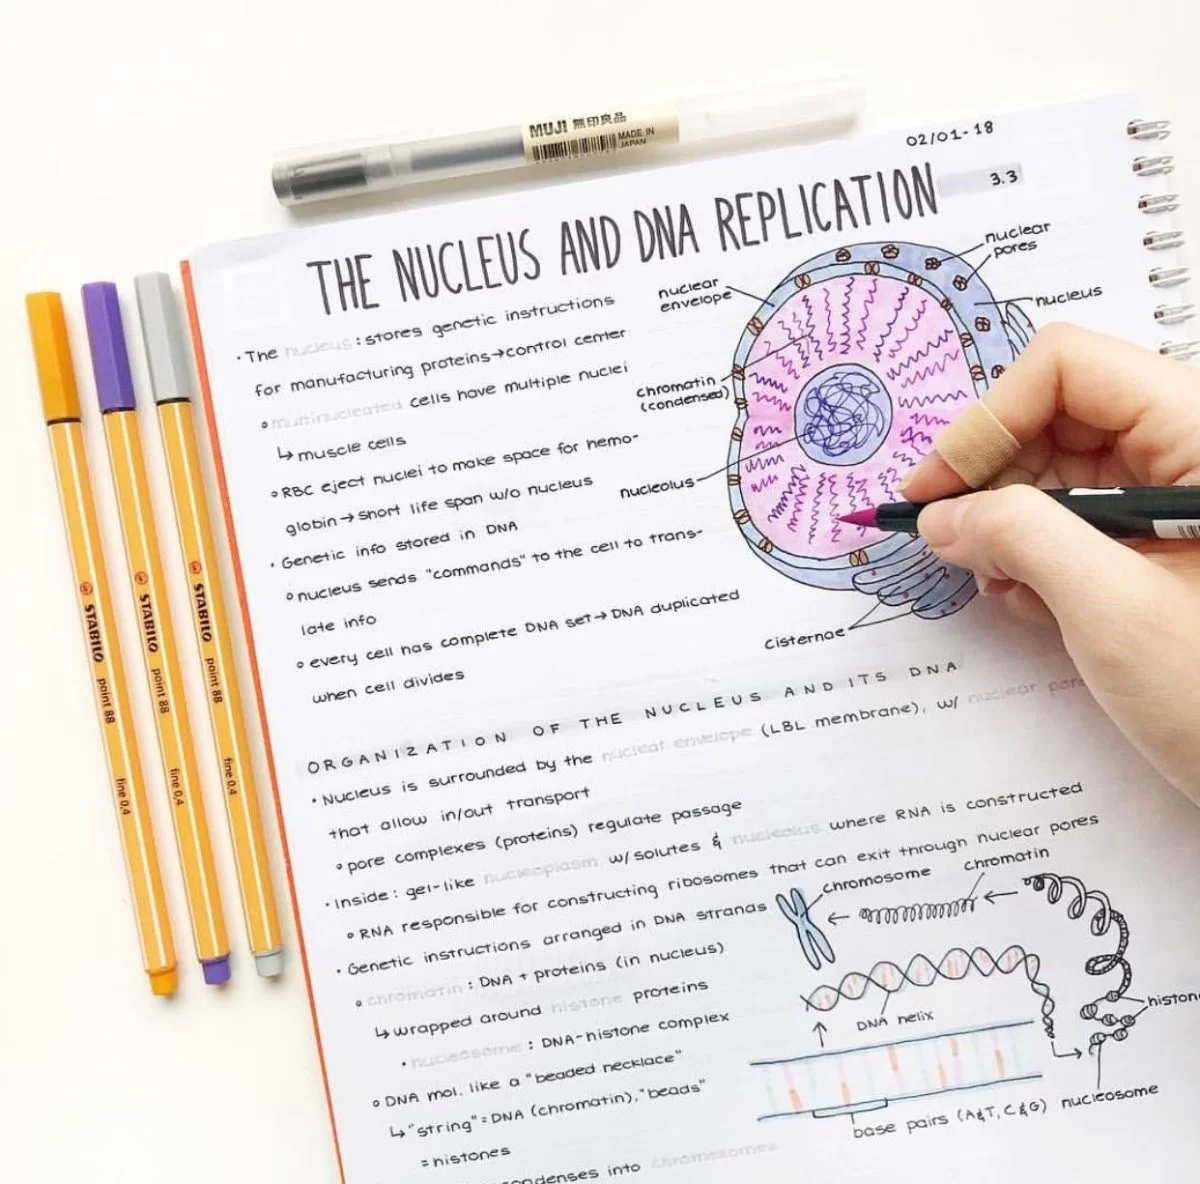 MUJI 無印良品
MADE IN
JAPAN
02/01-18
3.3
THE NUCLEUS AND DNA REPLICATION
• The nucleus : stores genetic instructions
for manufacturing proteins→control center
◦ multinucleated cells have multiple nuclei
↳ muscle cells
◦ RBC eject nuclei to make space for hemo-
globin → short life span w/o nucleus
• Genetic info stored in DNA
◦ nucleus sends "commands" to the cell to trans-
late info
◦ every cell has complete DNA set→ DNA duplicated
when cell divides
nuclear
envelope
nuclear
pores
nucleus
chromatin
(condensed)
nucleolus
cisternae
ORGANIZATION OF THE NUCLEUS AND ITS DNA
• Nucleus is surrounded by the nuclear envelope (LBL membrane), w/ nuclear
that allow in/out transport
◦ pore complexes (proteins) regulate passage
• Inside : gel-like nucleoplasm w/ solutes & nucleolus where RNA is constructed
◦ RNA responsible for constructing ribosomes that can exit through nuclear pores
• Genetic instructions arranged in DNA strands
◦ chromatin : DNA + proteins (in nucleus)
↳ wrapped around histone proteins
• nucleosome : DNA-histone complex
◦ DNA mol. like a "beaded necklace"
↳ "string" = DNA (chromatin), "beads"
= histones
condenses into chromosomes
chromosome
chromatin
DNA helix
histon
nucleosome
base pairs (A&T, C&G)
STABILO point 88 fine 0,4
STABILO point 88 fine 0,4
STABILO point 88 fine 0,4